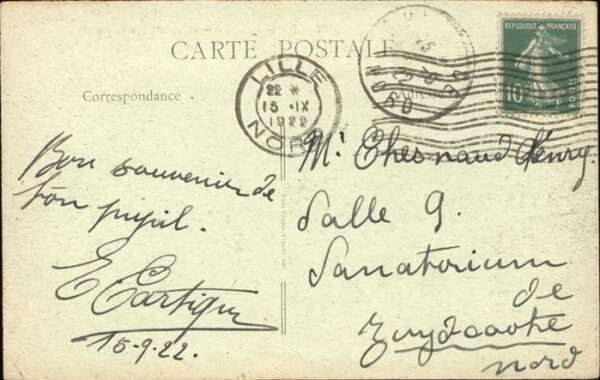 CARTE POSTALE
Correspondance
LILLE
22 *
15 IX
1922
NORD
REPUBLIQUE FRANÇAISE
10
POSTES
NORD
Bon souvenir de
ton pupil.
E Cartigny
15-9-22.
Mr Chesnaud Henry
Salle 9.
Sanatorium
de
Zuydcoote
Nord